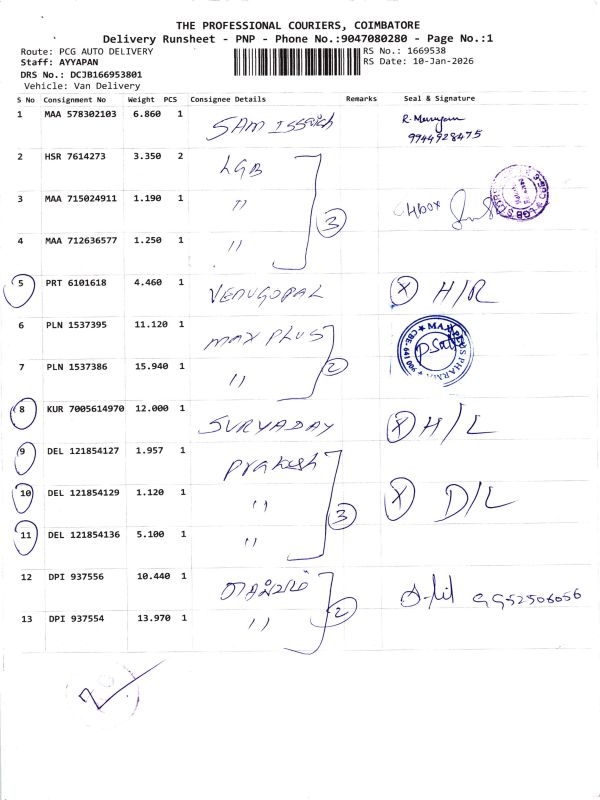 THE PROFESSIONAL COURIERS, COIMBATORE
Delivery Runsheet - PNP - Phone No.:9047080280 - Page No.:1
Route: PCG AUTO DELIVERY
RS No.: 1669538
Staff: AYYAPAN
RS Date: 10-Jan-2026
DRS No.: DCJB166953801
Vehicle: Van Delivery
S No Consignment No Weight PCS Consignee Details Remarks Seal & Signature
1 MAA 578302103 6.860 1 SAM
9944928475
2 HSR 7614273 3.350 2 LGB
3 MAA 715024911 1.190 1 " 3
4 MAA 712636577 1.250 1 "
5 PRT 6101618 4.460 1 VENUGOPAL X H/R
6 PLN 1537395 11.120 1 MAX PLUS
7 PLN 1537386 15.940 1 " 2
8 KUR 7005614970 12.000 1 SURYADAY X H/L
9 DEL 121854127 1.957 1 Prakesh
10 DEL 121854129 1.120 1 " 3 X D/L
11 DEL 121854136 5.100 1 "
12 DPI 937556 10.440 1
13 DPI 937554 13.970 1 " 2